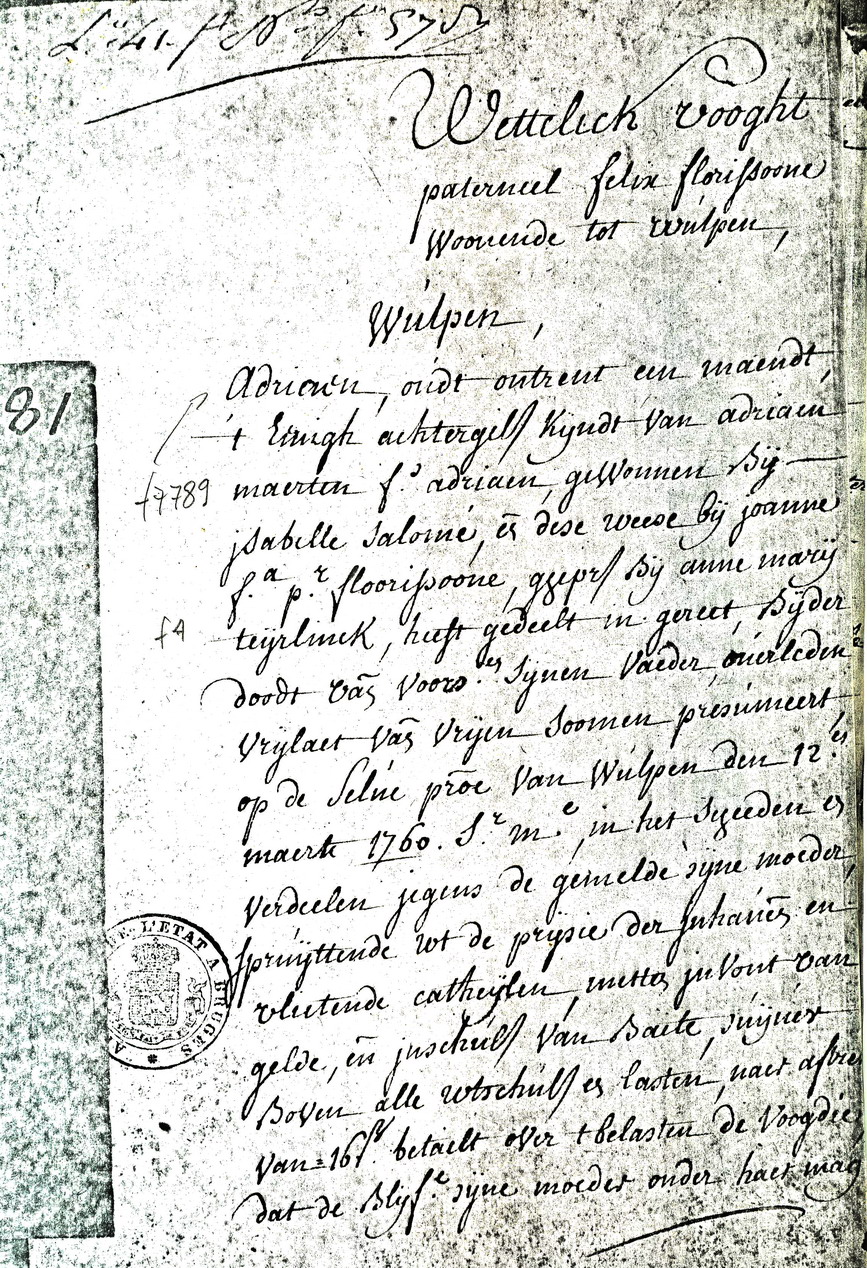 Wettelick vooght
paterneel felix florissoone
Woonende tot wulpen,
Wulpen,
Adriaen, oudt ontrent een maendt,
't Eenigh achtergel. Kyndt Van adriaen
81
f°7789
maerten f.s adriaen, geWonnen Bij
jsabelle Salomé, en dese weese bij joanne
f.a p.r floorissoone, Bij anne marij
f4
teijrlinck, heeft gedeelt in gereet, Bijder
doodt van voors.en Sijnen Vaeder, overleden
Vrijlaet van vrijen Soomen presumeert,
op de Selve proe Van Wulpen den 12.en
maerte 1760. S.r m.e, in het Sceeden en
Verdeelen jegens de gemelde sijne moeder,
Spruijttende wt de prijsie der en
vlietende catheijlen, mette juVont van
gelde, en juschuls Van Baete, suijver
Boven alle wtschuls en lasten, naer
Van = 16 betaelt over t belasten de Voogdie
dat de Blijf.e sijne moeder onder haer
DE L'ETAT A BRUGES